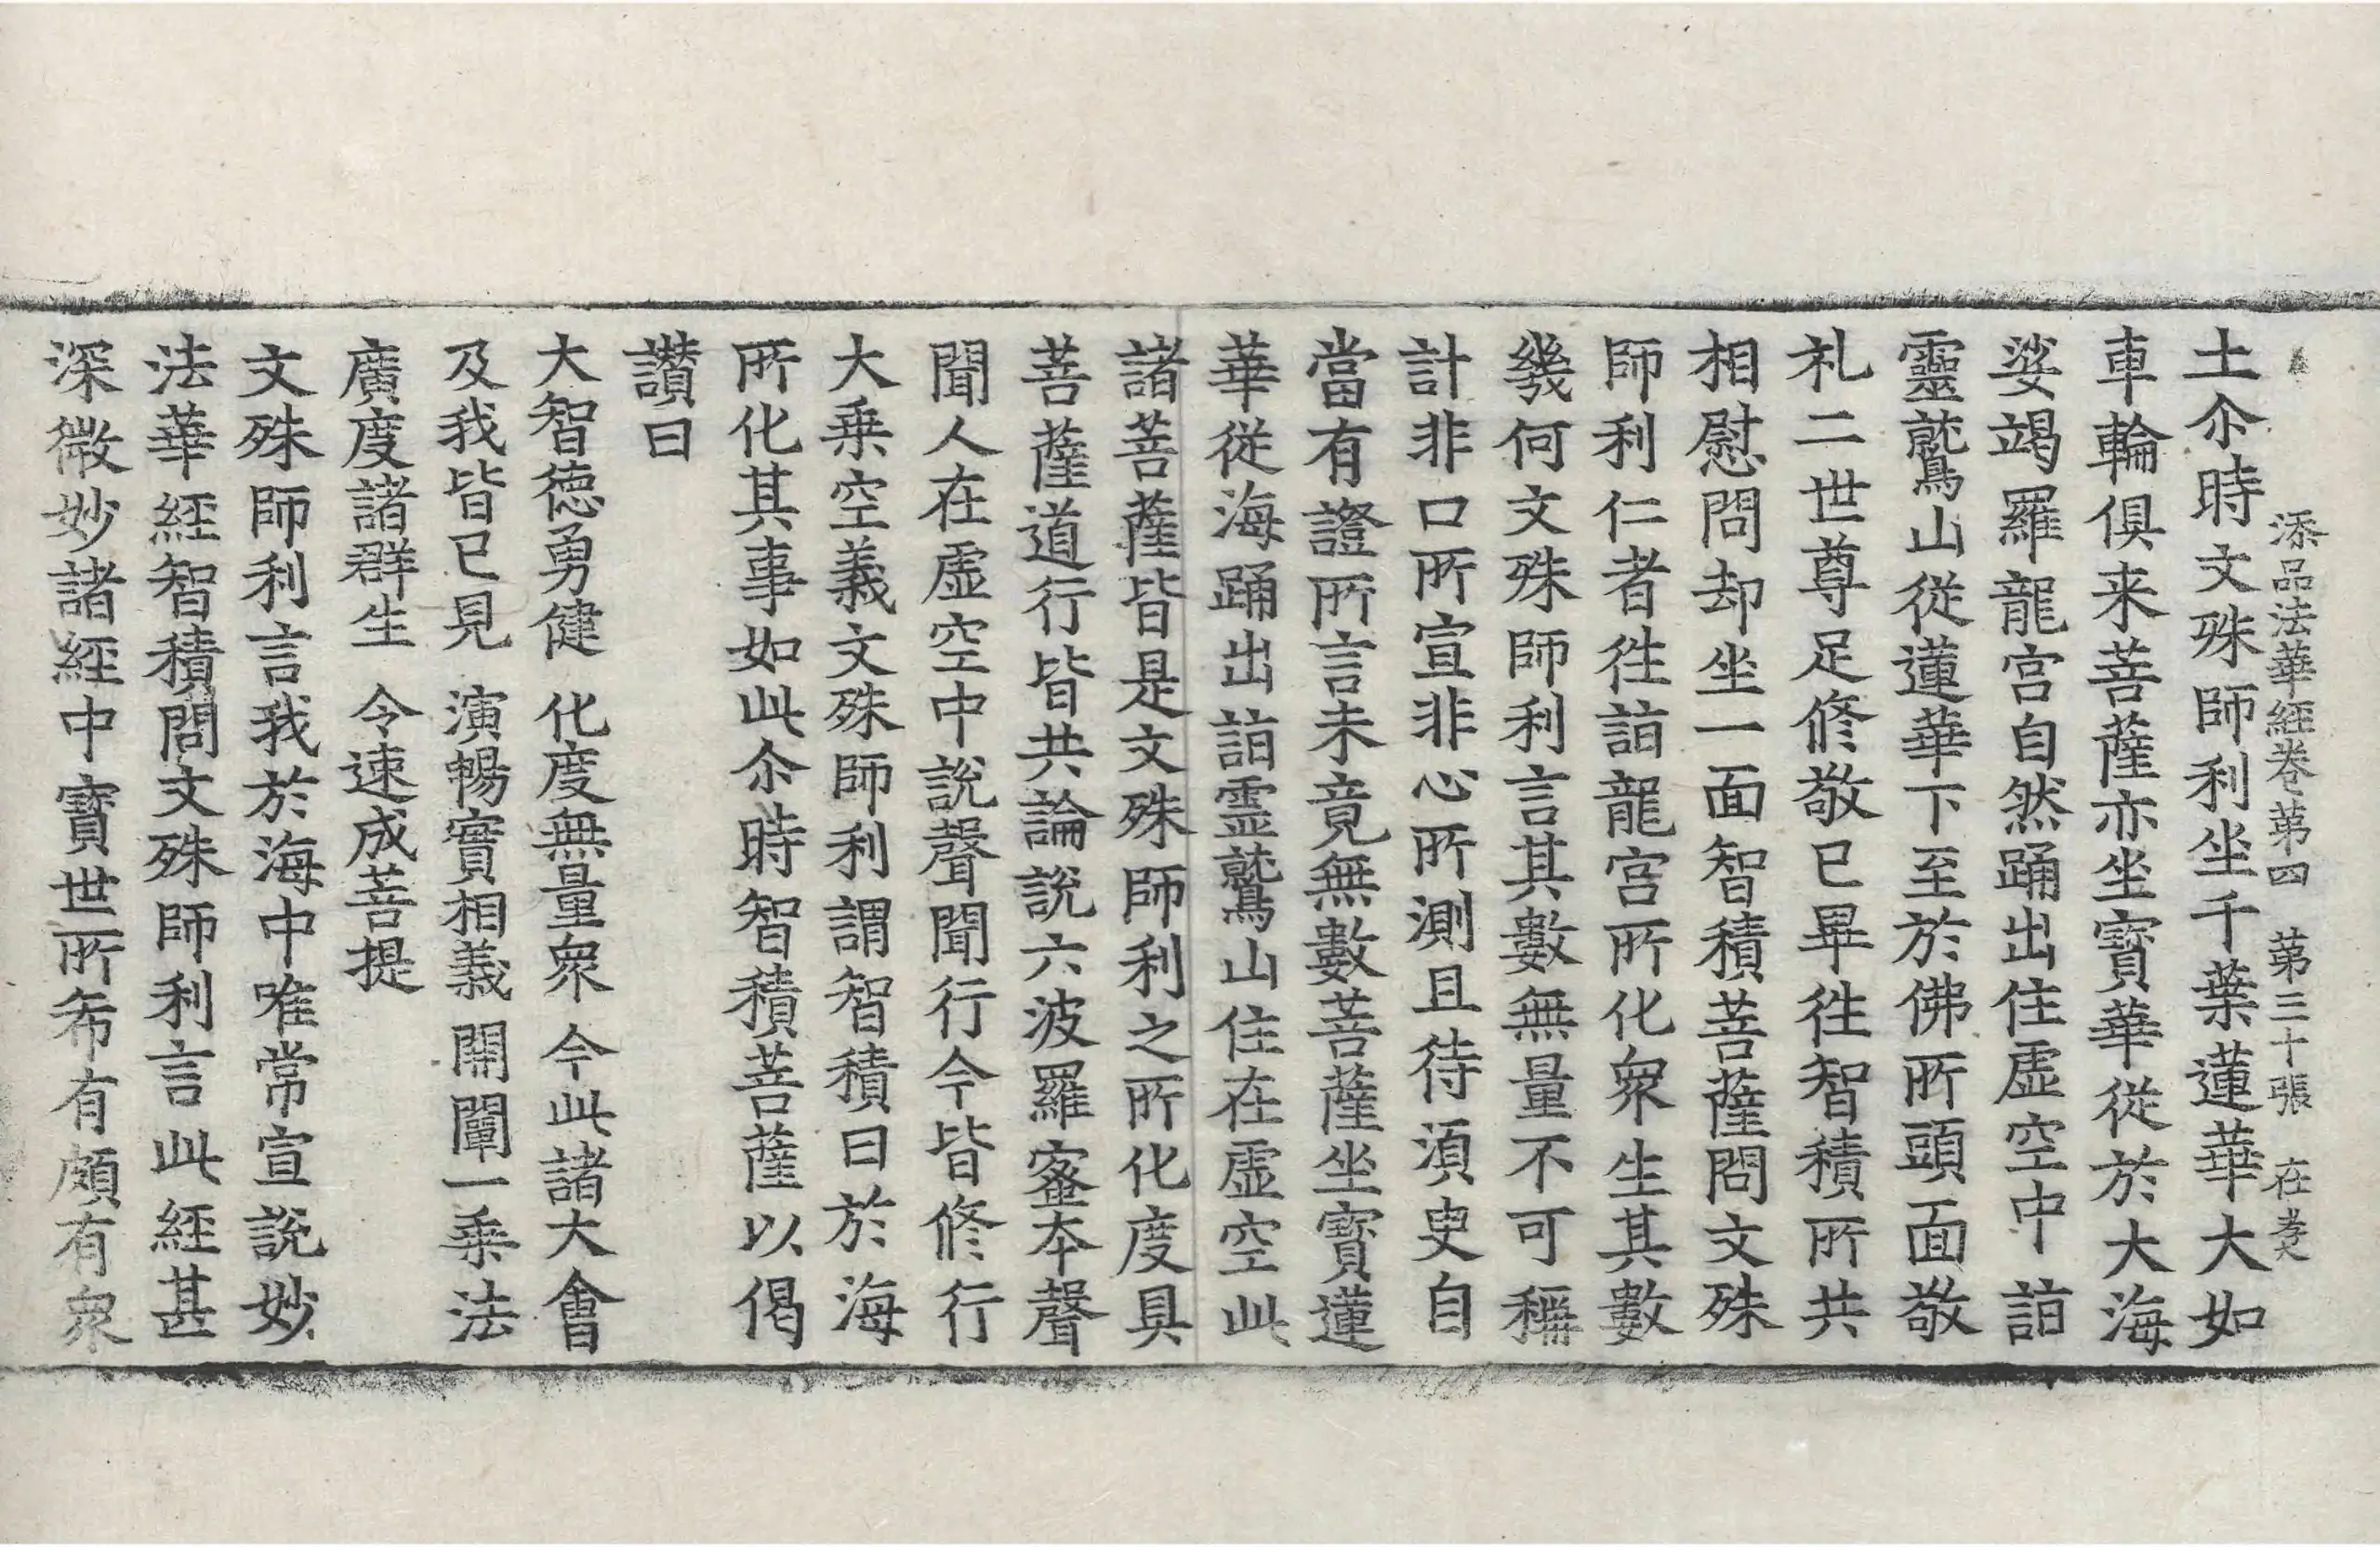 添品法華經卷第四 第三十張 在
土尒時文殊師利坐千葉蓮華大如
車輪俱来菩薩亦坐寶華從於大海
娑竭羅龍宮自然踊出住虛空中詣
靈鷲山從蓮華下至於佛所頭面敬
礼二世尊足修敬已畢徃智積所共
相慰問却坐一面智積菩薩問文殊
師利仁者徃詣龍宮所化衆生其數
幾何文殊師利言其數無量不可稱
計非口所宣非心所測且待湏臾自
當有證所言未竟無數菩薩坐寶蓮
華從海踊出詣靈鷲山住在虛空此
諸菩薩皆是文殊師利之所化度具
菩薩道行皆共論說六波羅蜜本聲
聞人在虛空中說聲聞行今皆修行
大乘空義文殊師利謂智積曰於海
所化其事如此尒時智積菩薩以偈
讃曰
大智德勇健 化度無量衆 今此諸大會
及我皆已見 演暢實相義 開闡一乘法
廣度諸群生 令速成菩提
文殊師利言我於海中唯常宣說妙
法華經智積問文殊師利言此經甚
深微妙諸經中寶世所希有頗有衆